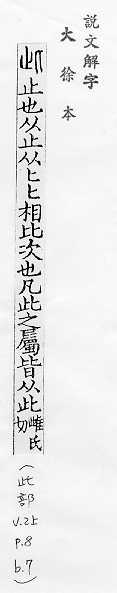 説文解字
大徐本
此 止也从止从匕匕相比次也凡此之屬皆从此 雌氏切
(此部
V.2上
P.8
b.7)